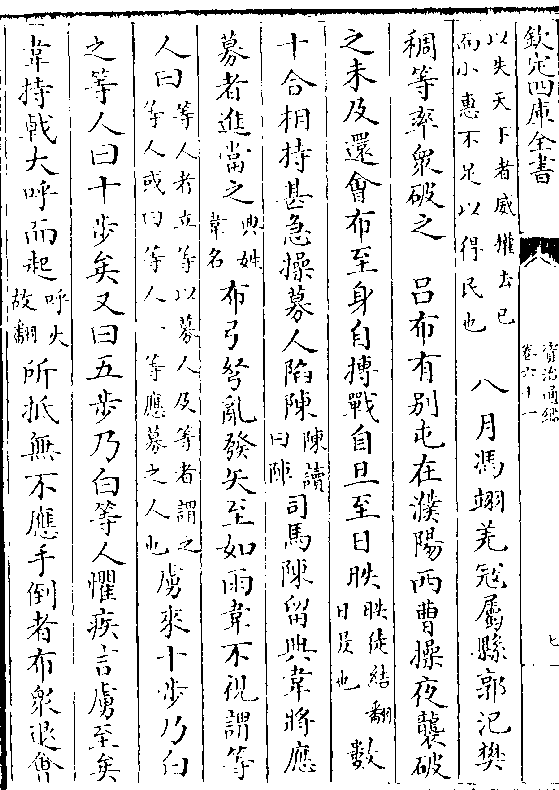 欽定四庫全書
資治通鑑
卷六十一
七
以失天下者威權去已
而小惠不足以得民也
八月馮翊羌冦屬縣郭汜樊
稠等率衆破之　吕布有别屯在濮陽西曹操夜襲破
之未及還會布至身自搏戰自旦至日昳昳徒結翻日昃也數
十合相持甚急操募人陷陳陳讀曰陣司馬陳留典韋將應
募者進當之典姓韋名布弓弩亂發矢至如雨韋不視謂等
人曰等人者立等以募人及等者謂之等人或曰等人一等應募之人也虜來十步乃白
之等人曰十步矣又曰五步乃白等人懼疾言虜至矣
韋持戟大呼而起呼火故翻所抵無不應手倒者布衆退會